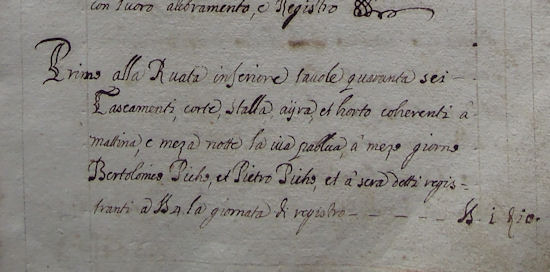 con suoro alibramento, e Registro
Primo alla Ruata inferiore tauole quaranta sei -
Casamenti, corte, stalla, ayra, et horto coherenti á
mattina, e meza notte la uia publica, á mezo giorno
Bertolomeo Picho, et Pietro Picho, et á sera detti regis-
tranti a 4 la giornata di registro - - - - - - 1